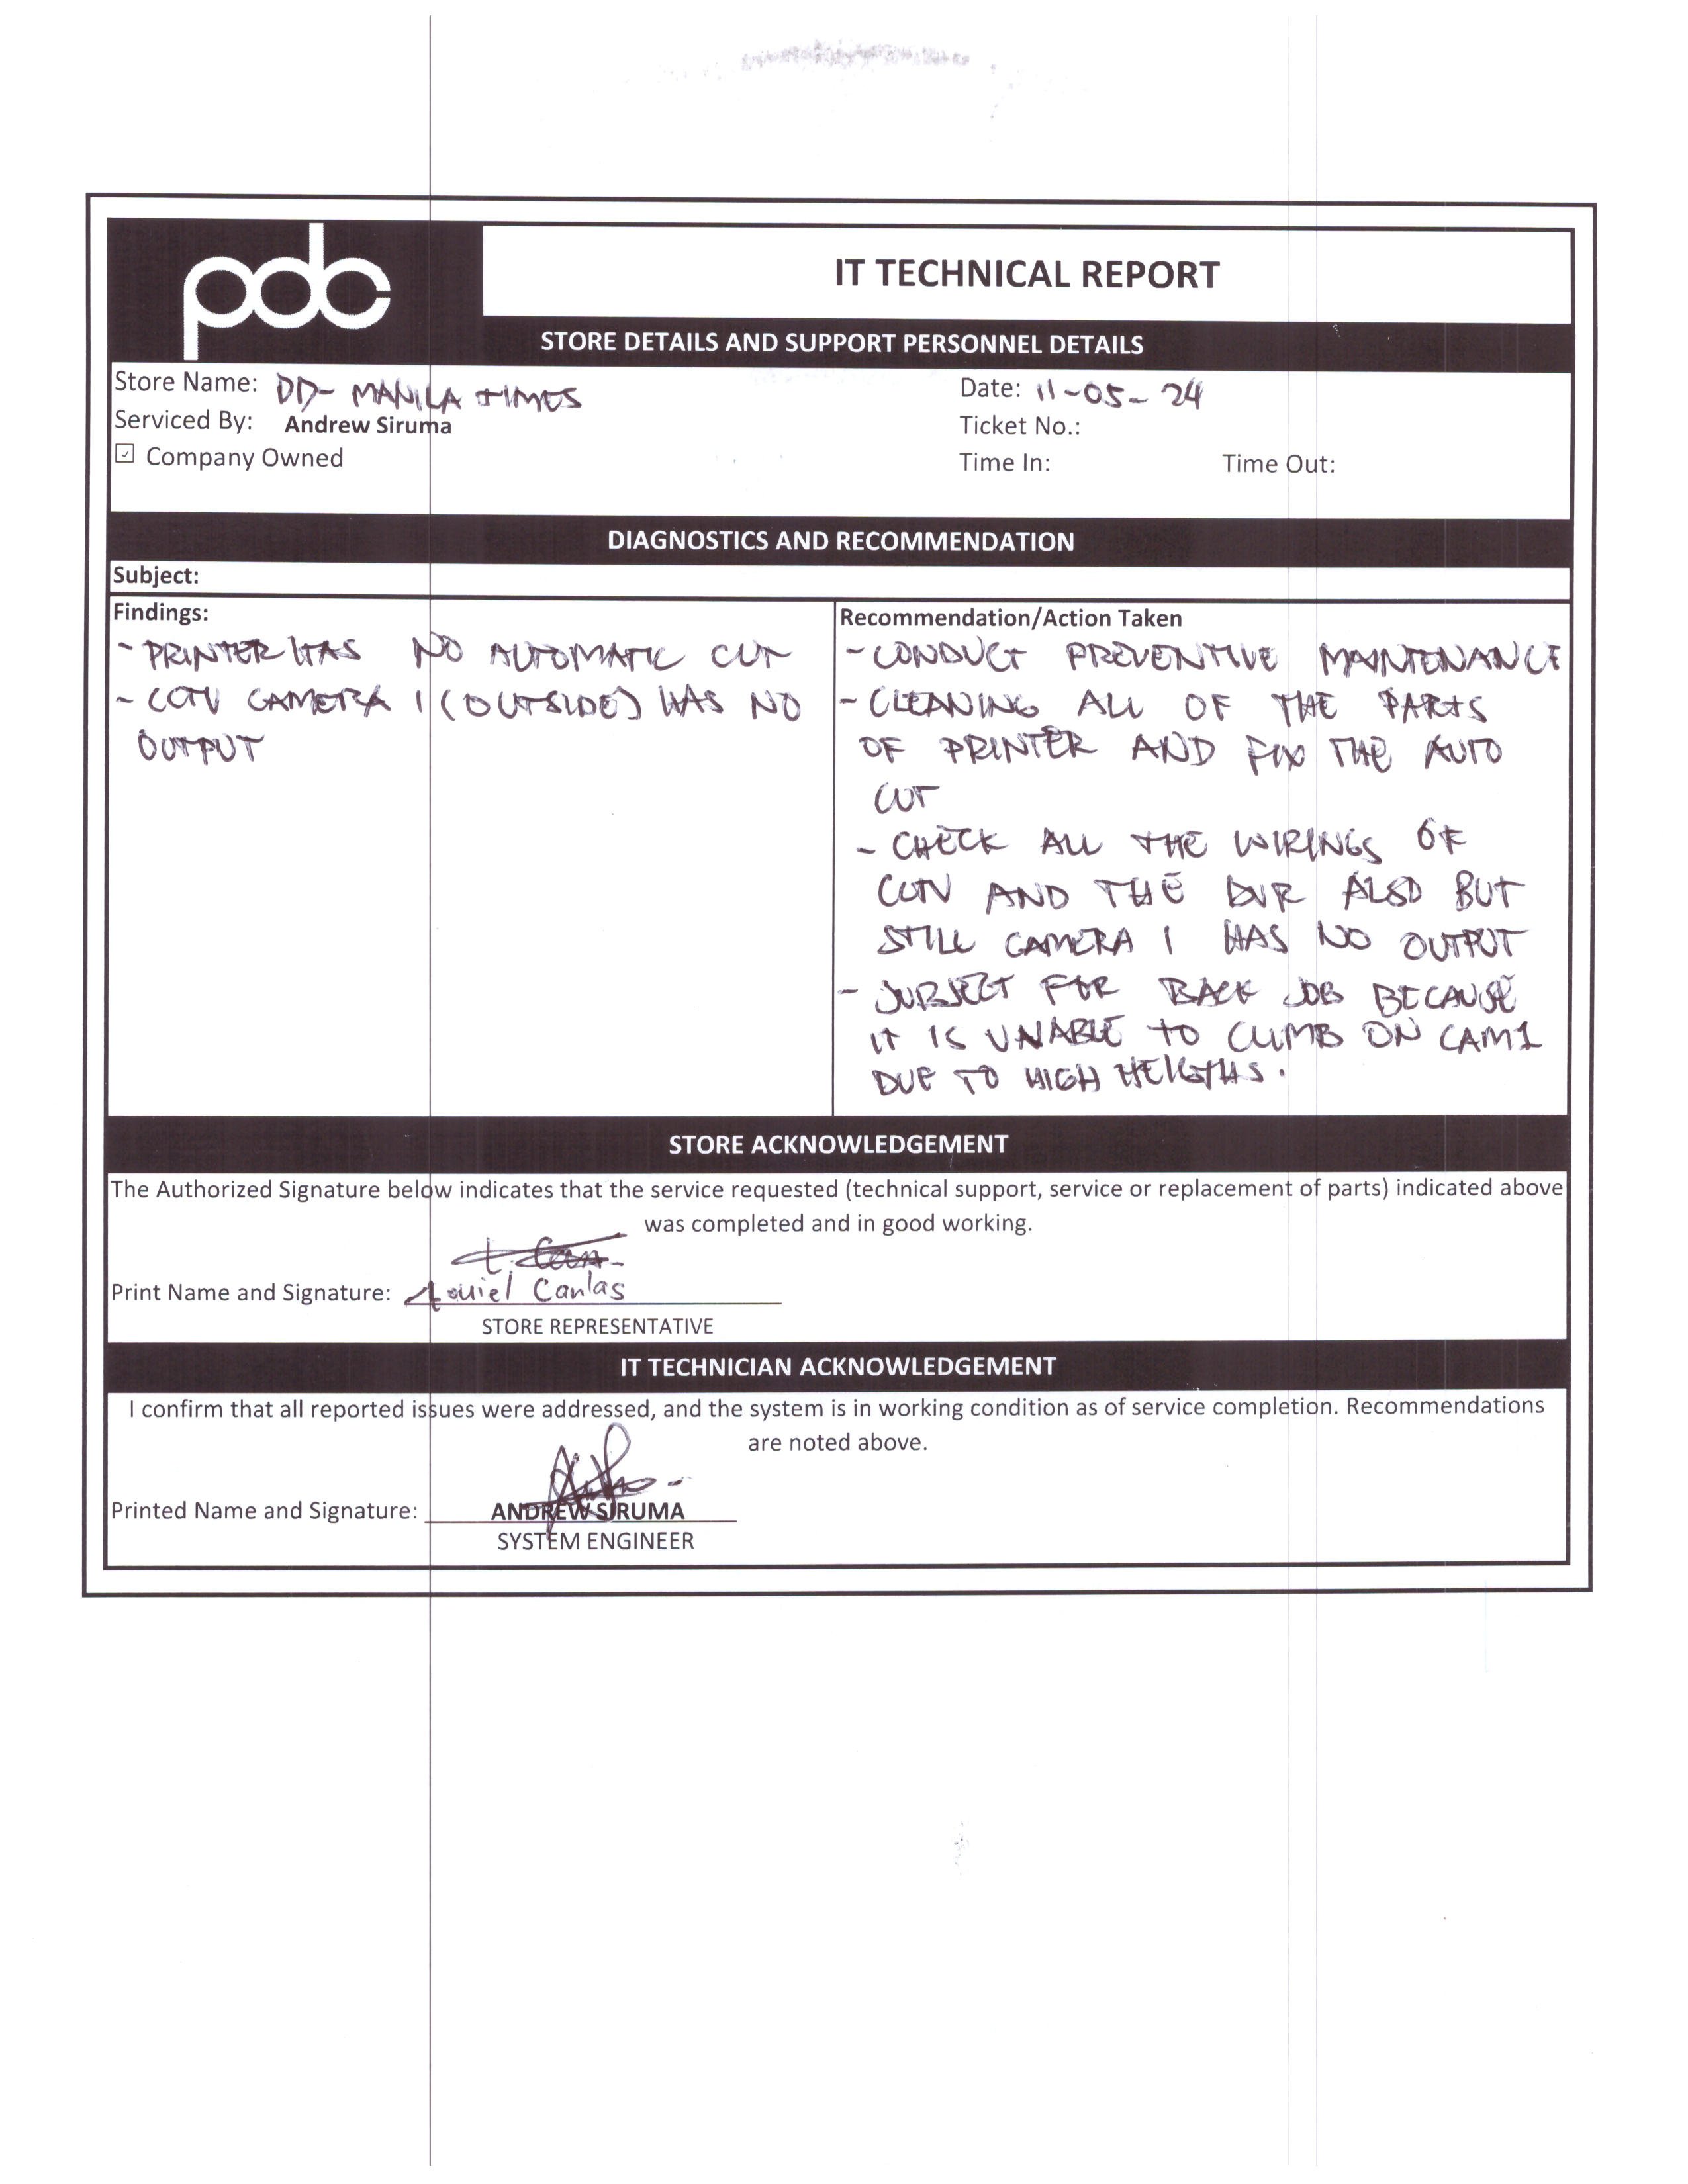 pdc
IT TECHNICAL REPORT
STORE DETAILS AND SUPPORT PERSONNEL DETAILS
Store Name: DD- MANILA TIMES
Date: 11-05-24
Serviced By: Andrew Siruma
Ticket No.:
☑ Company Owned
Time In: Time Out:
DIAGNOSTICS AND RECOMMENDATION
Subject:
Findings:
- PRINTER HAS NO AUTOMATIC CUT
- CCTV CAMERA 1 (OUTSIDE) HAS NO
OUTPUT
Recommendation/Action Taken
- CONDUCT PREVENTIVE MAINTENANCE
- CLEANING ALL OF THE PARTS
OF PRINTER AND FIX THE AUTO
CUT
- CHECK ALL THE WIRINGS OF
CCTV AND THE DVR ALSO BUT
STILL CAMERA 1 HAS NO OUTPUT
- SUBJECT FOR BACK JOB BECAUSE
IT IS UNABLE TO CLIMB ON CAM1
DUE TO HIGH HEIGTHS.
STORE ACKNOWLEDGEMENT
The Authorized Signature below indicates that the service requested (technical support, service or replacement of parts) indicated above
was completed and in good working.
Print Name and Signature: Canlas
STORE REPRESENTATIVE
IT TECHNICIAN ACKNOWLEDGEMENT
I confirm that all reported issues were addressed, and the system is in working condition as of service completion. Recommendations
are noted above.
Printed Name and Signature: ANDREW SIRUMA
SYSTEM ENGINEER